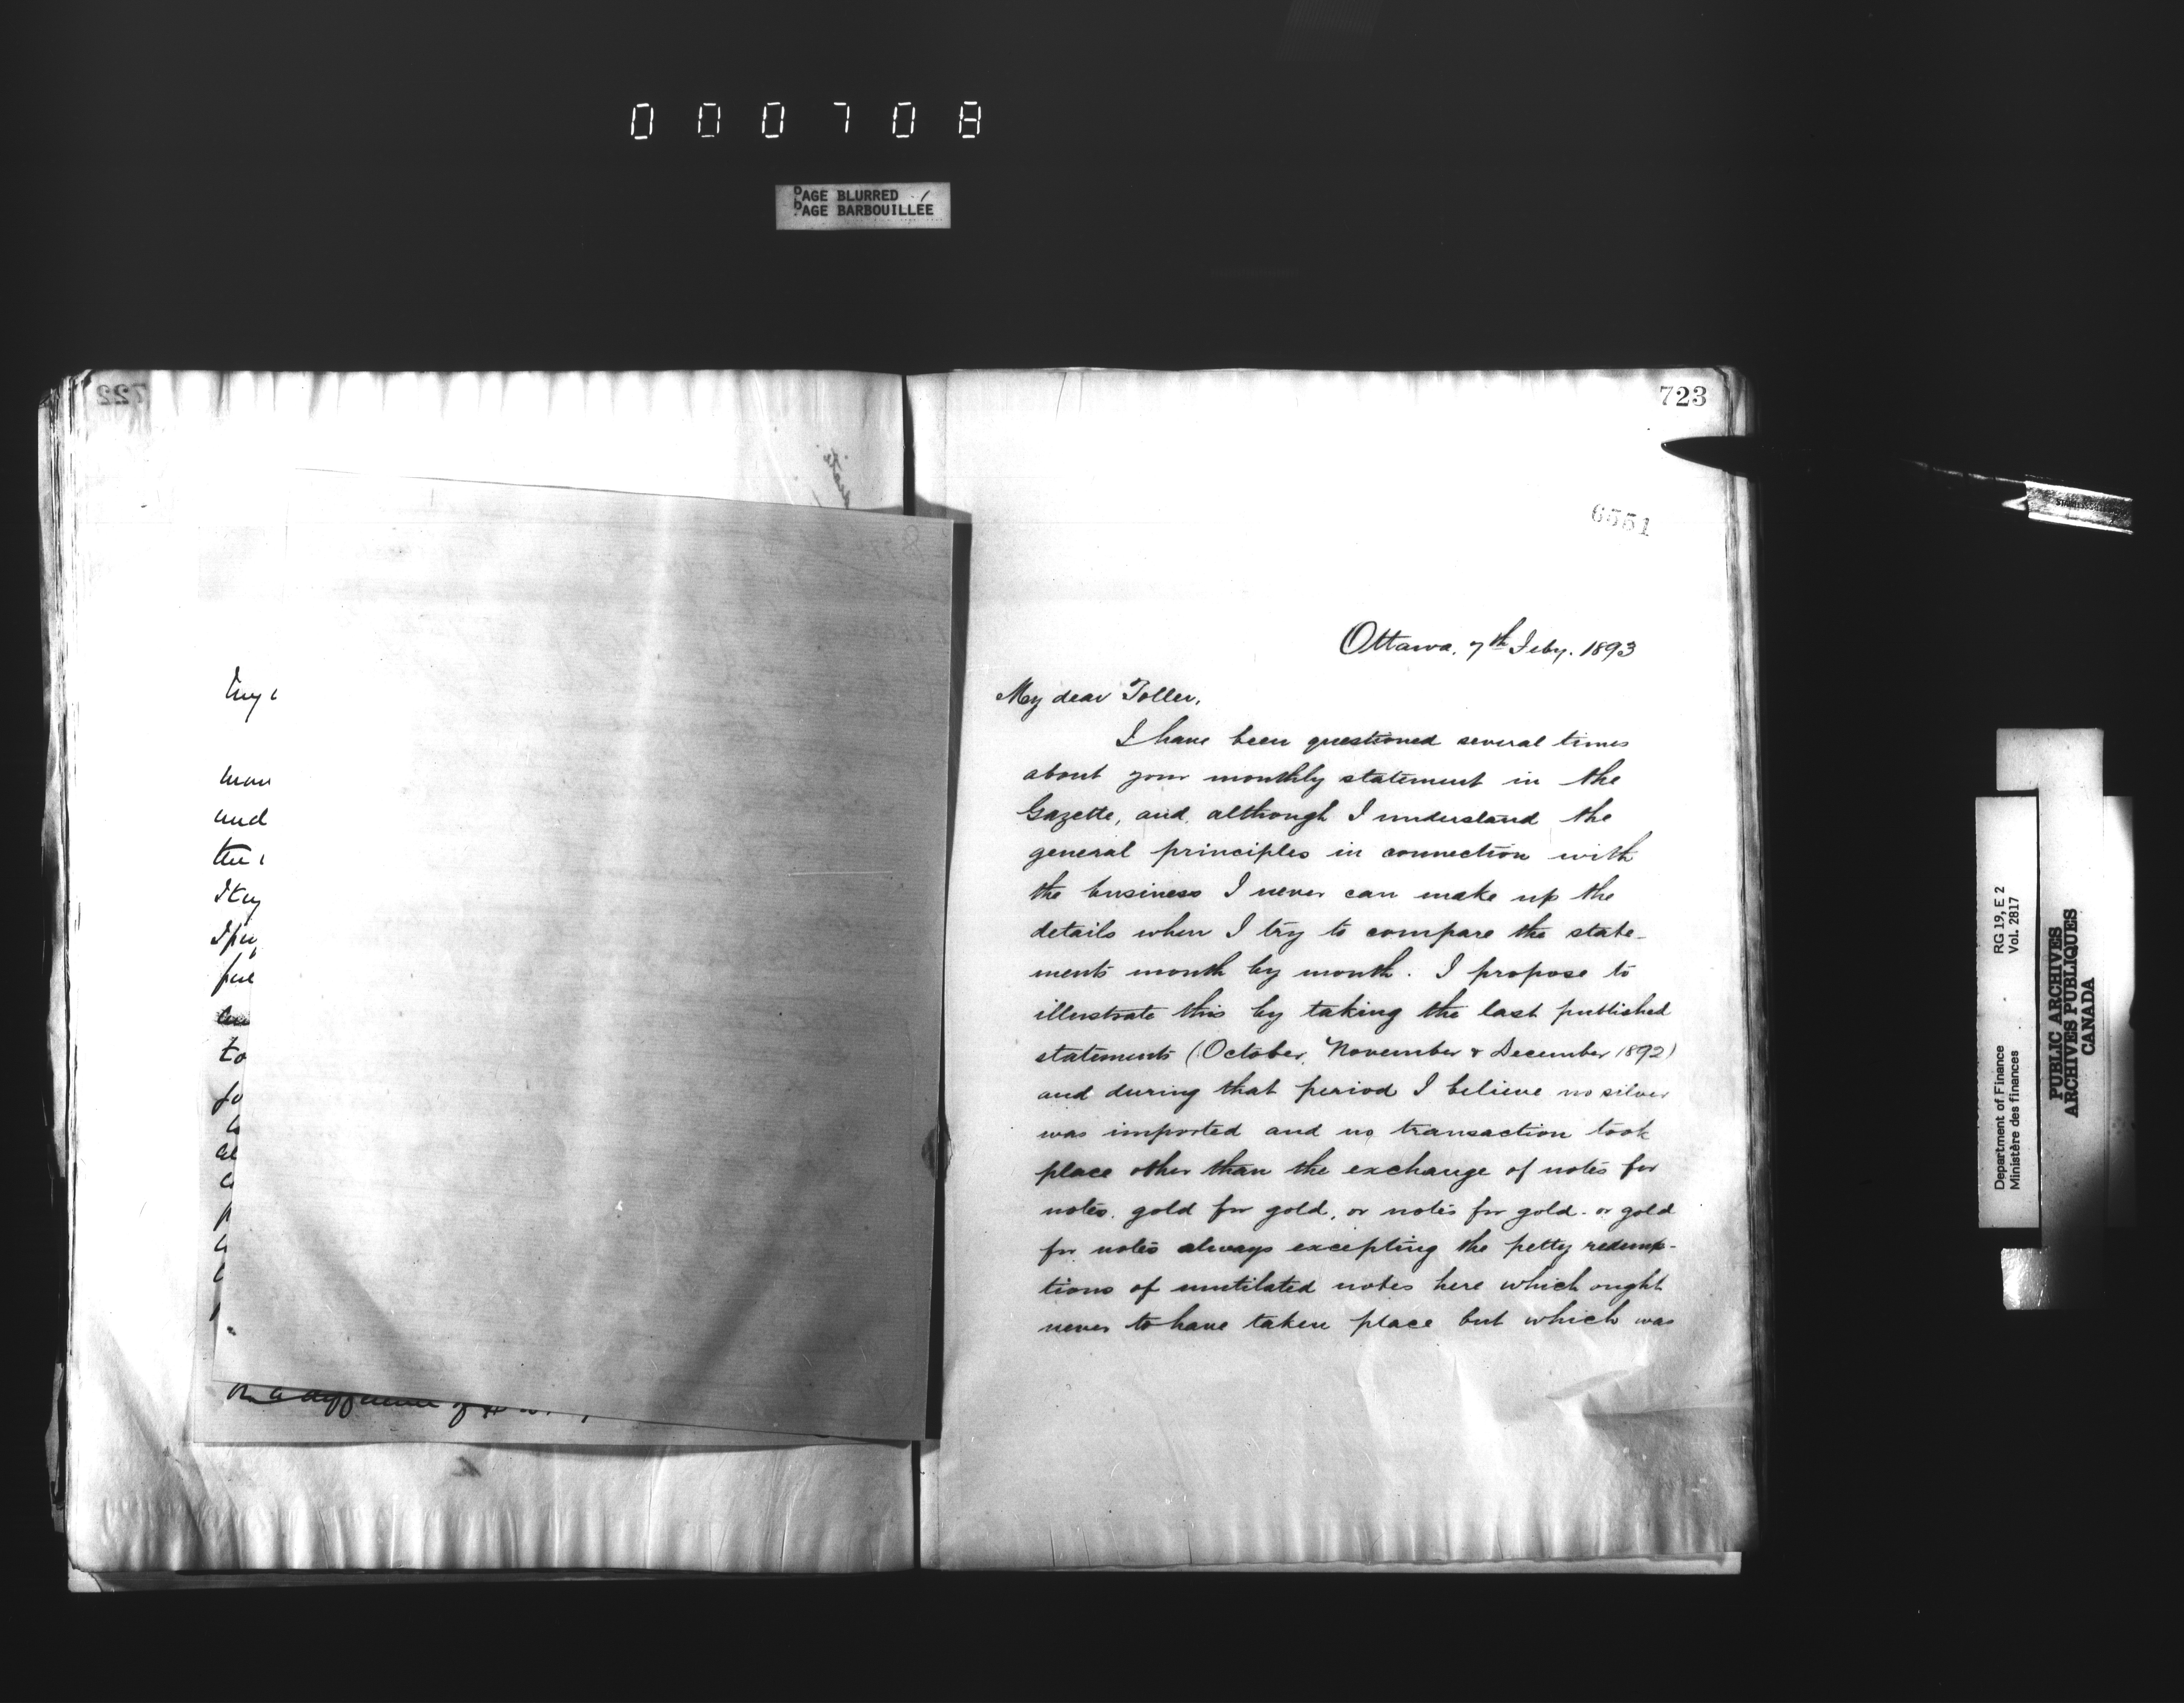 000708
PAGE BLURRED
PAGE BARBOUILLÉE
722
and
to
723
6551
Ottawa, 7th Feby. 1893
My dear Toller,
I have been questioned several times
about your monthly statement in the
Gazette, and, although I understand the
general principles in connection with
the business I never can make up the
details when I try to compare the state-
ments month by month. I propose to
illustrate this by taking the last published
statements (October, November & December 1892)
and during that period I believe no silver
was imported and no transaction took
place other than the exchange of notes for
notes, gold for gold, or notes for gold - or gold
for notes always excepting the petty redemp-
tions of mutilated notes here which ought
never to have taken place but which was
Department of Finance RG 19, E 2
Ministère des finances Vol. 2817
PUBLIC ARCHIVES
ARCHIVES PUBLIQUES
CANADA